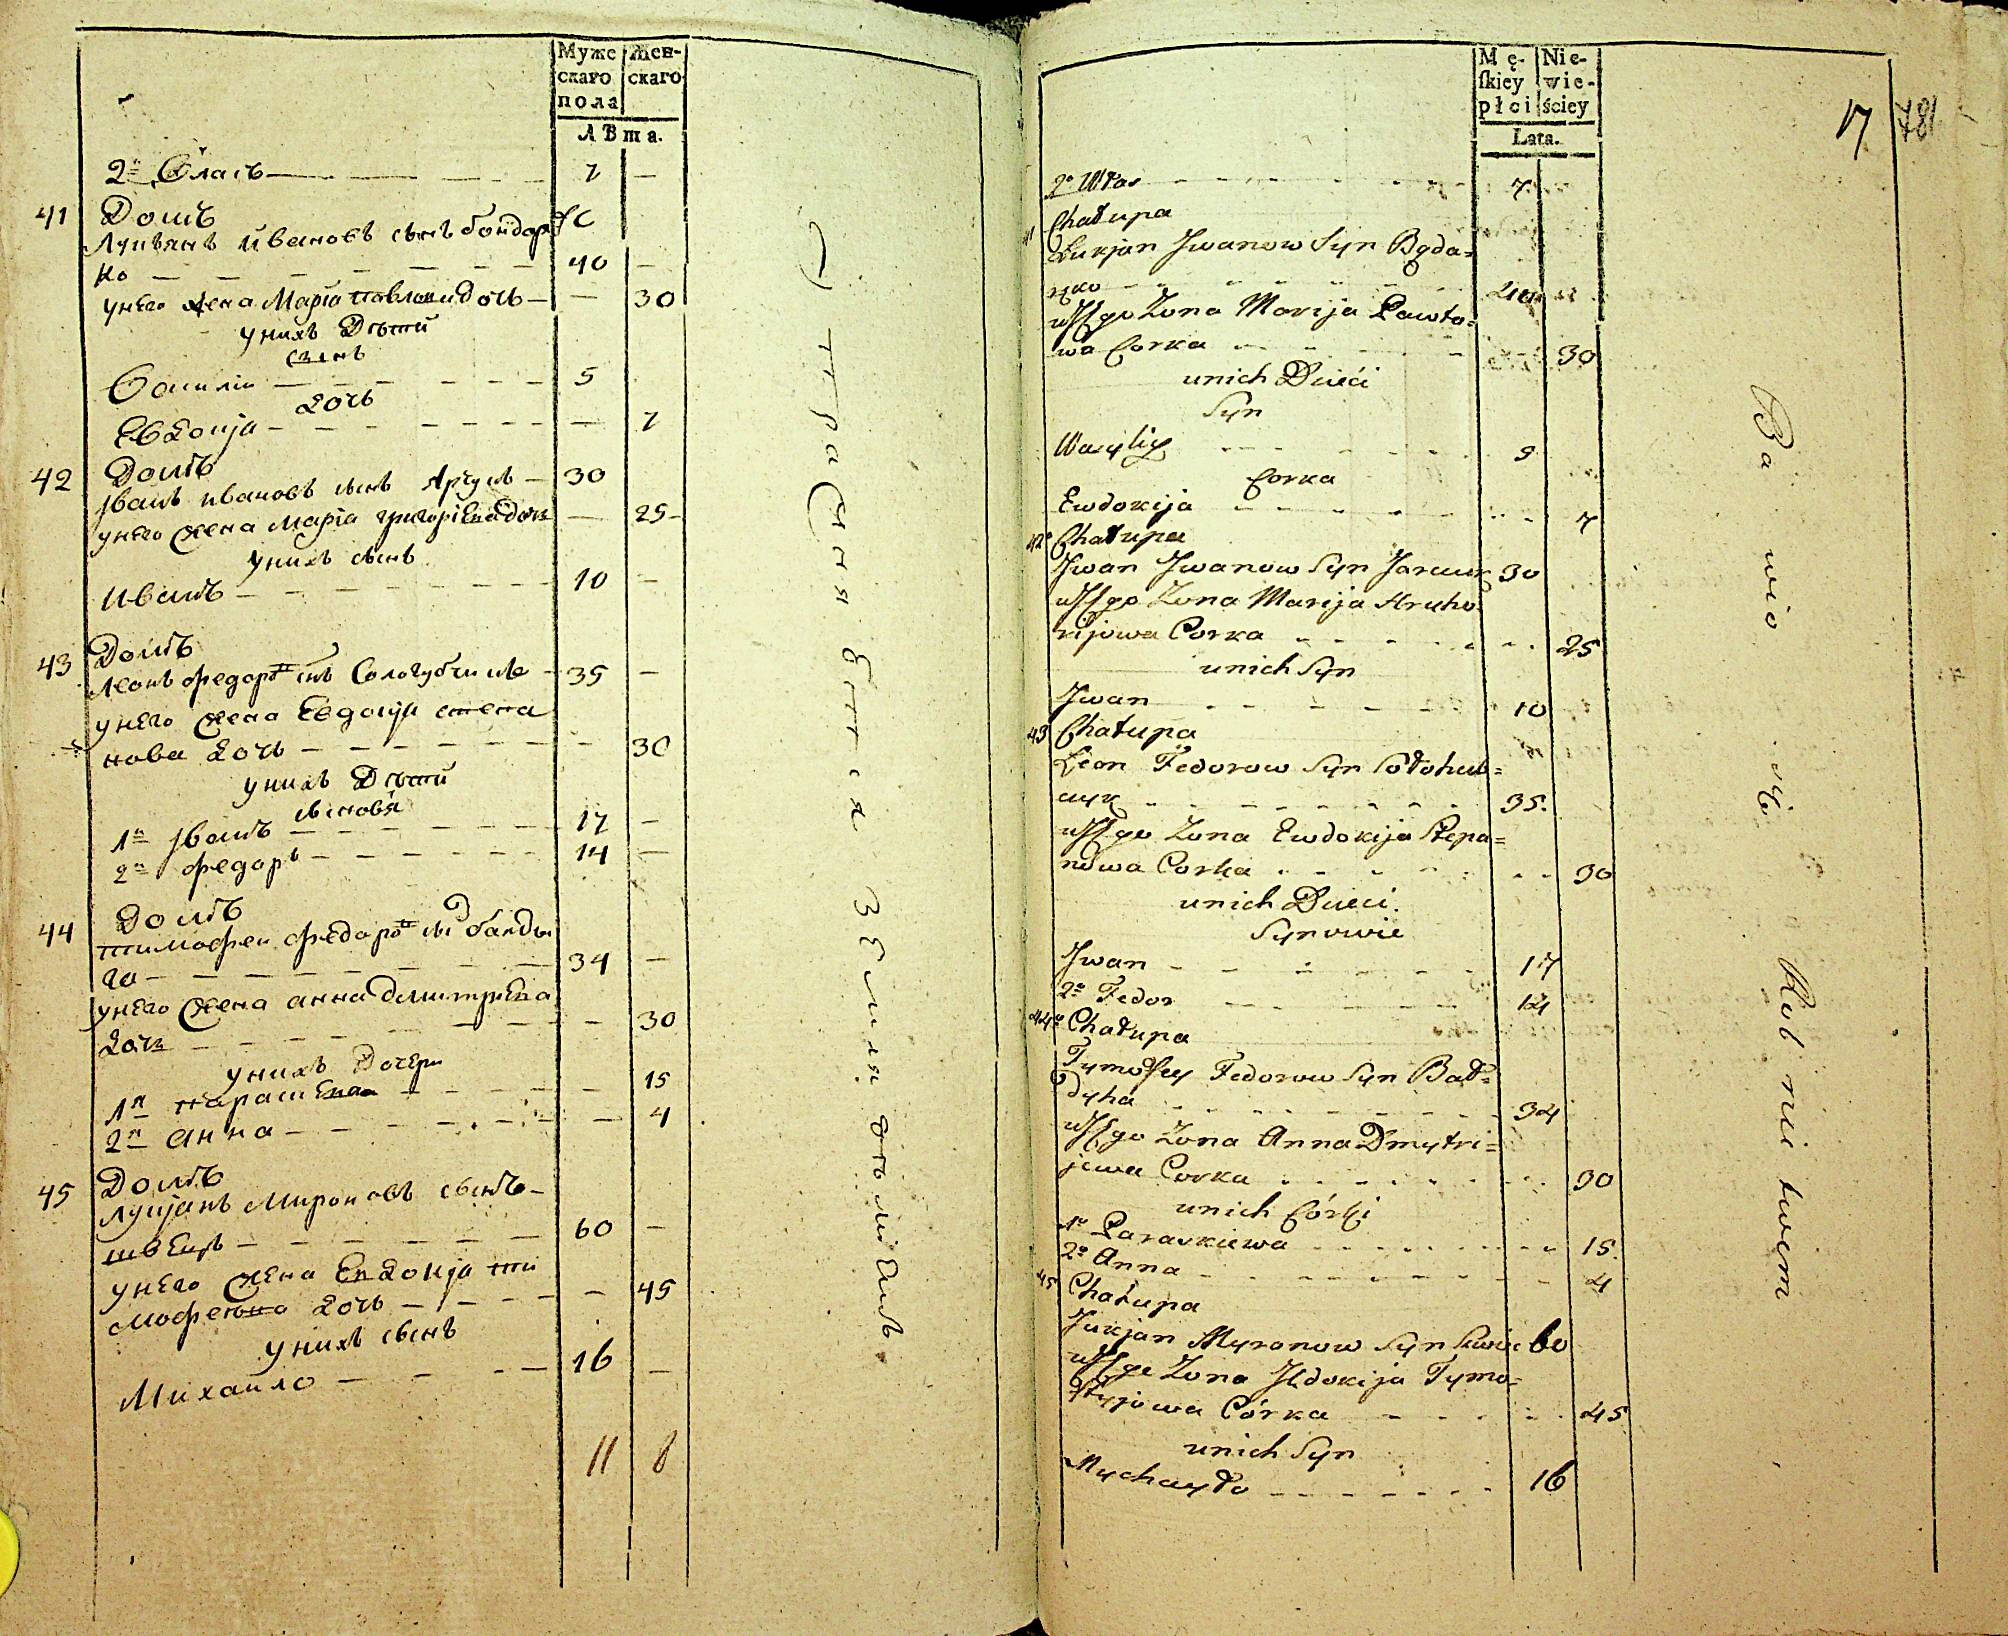 Муже скаго пола
Жен- скаго
Лѣта.
2й Власъ — 7 —
41 Домъ
Лукьянъ Ивановъ сынъ бондар
ко — 40 —
у него жена Марія павлова дочь — 30
у нихъ Дѣти
сынъ
Василій — 5
дочь
Евдокіја — 7
42 Домъ
Іванъ ивановъ сынъ Ярчукъ — 30
у него жена Марія григоріева дочь — 25
у нихъ сынъ
Иванъ — 10 —
43 Домъ
Леонъ федоровъ снъ Сологубчикъ — 35 —
у него жена Евдокіја степа
нова дочь — 30
у нихъ Дѣти
сыновя
1й Іванъ — 17 —
2й федоръ — 14 —
44 Домъ
тимофеи федоровъ сы балды
га — 34 —
у него жена анна Дмитриева
дочь — 30
у нихъ Дочери
1я параскева — 15
2я анна — 4
45 Домъ
лукјанъ Мироновъ сынъ
швецъ — 60 —
у него жена Евдокіја ти
мофеевна дочь — 45
у нихъ сынъ
Михаило — 16 —
11 8
питаются отъ земли
Mę- skiey płci
Nie- wie- ściey
Lata.
17
781
2o Włas 7
41 Chałupa
Łukjan Jwanow Syn Bąda-
rko 40
u Jego Zona Marija Pawło-
wa Corka 30
unich Dzieci
Syn
Wasyliy 5
Corka
Ewdokija 7
42o Chałupa
Jwan Jwanow Syn Jarczuk 30
u Jego Zona Marija Hryho-
rijowa Corka 25
unich Syn
Jwan 10
43 Chałupa
Leon Fedorow Syn Sołohub-
czyk 35.
u Jego Zona Ewdokija Stepa-
nowa Corka 30
unich Dzieci.
Synowie
Jwan 17
2o Fedor 14
44o Chałupa
Tymofiey Fedorow Syn Bał-
dyha 34
u Jego Zona Anna Dmytri-
jewa Corka 30
unich Córki
1o Paraskiewa 15.
2o Anna 4
45 Chałupa
Łukjan Myronow Syn Szwiec 60
u Jego Zona Jewdokija Tymo-
fiyjowa Córka 45
unich Syn
Mychayło 16
Bawio się Rolnictwem